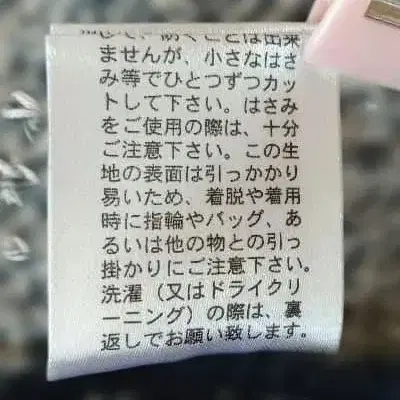 して、防ぐことは出来
ませんが、小さなはさ
み等でひとつずつカッ
トして下さい。はさみ
をご使用の際は、十分
ご注意下さい。この生
地の表面は引っかかり
易いため、着脱や着用
時に指輪やバッグ、あ
るいは他の物との引っ
掛かりにご注意下さい。
洗濯（又はドライクリ
ーニング）の際は、裏
返しでお願い致します。